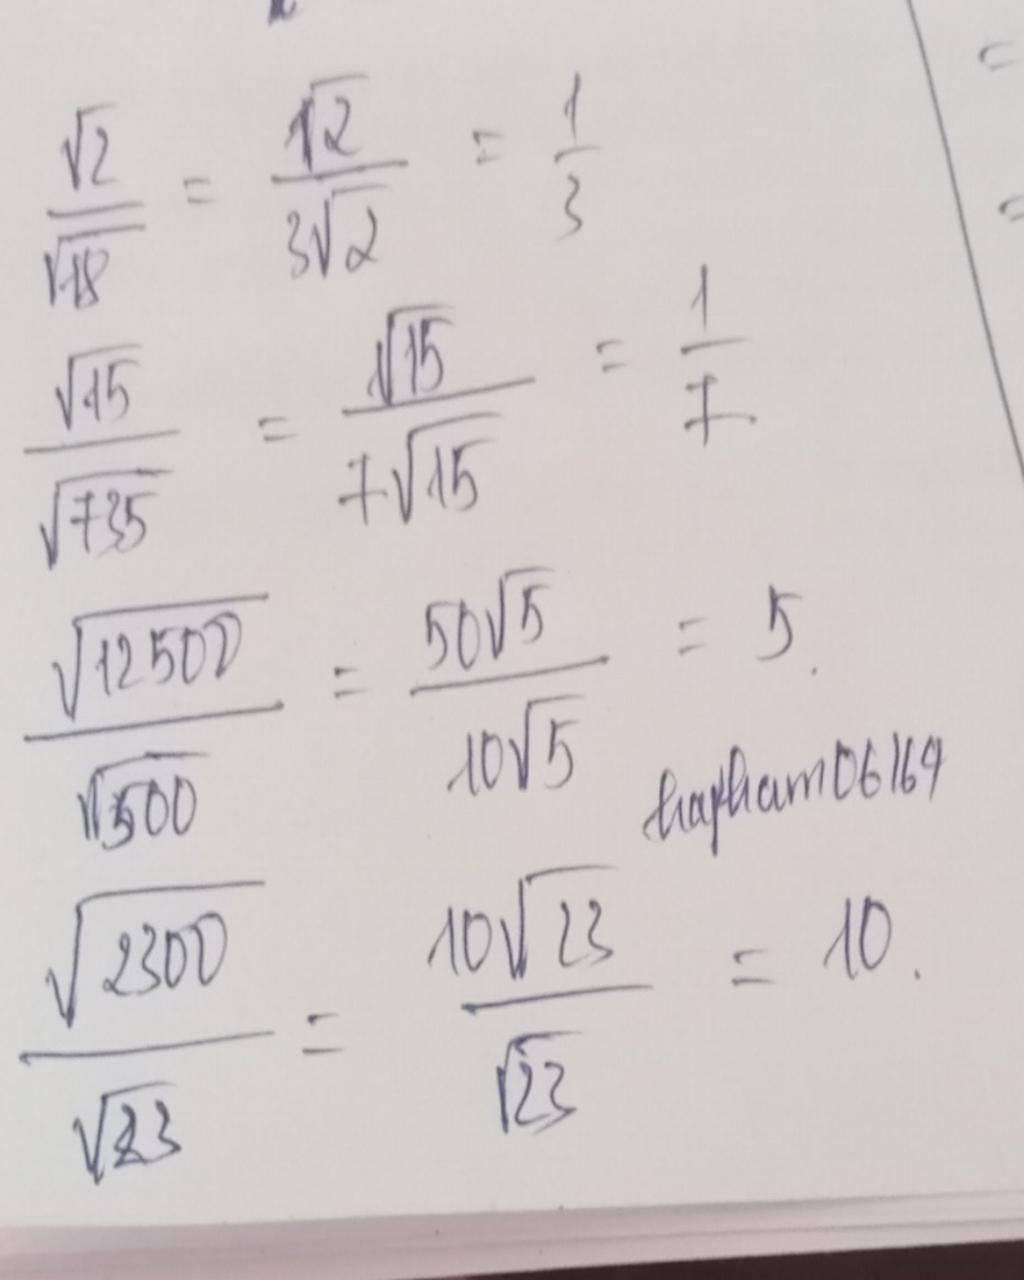 √2/√18 = √2/3√2 = 1/3
√15/√735 = √15/7√15 = 1/7
√12500/√500 = 50√5/10√5 = 5.
hapham06164
√2300/√23 = 10√23/√23 = 10.
=
=